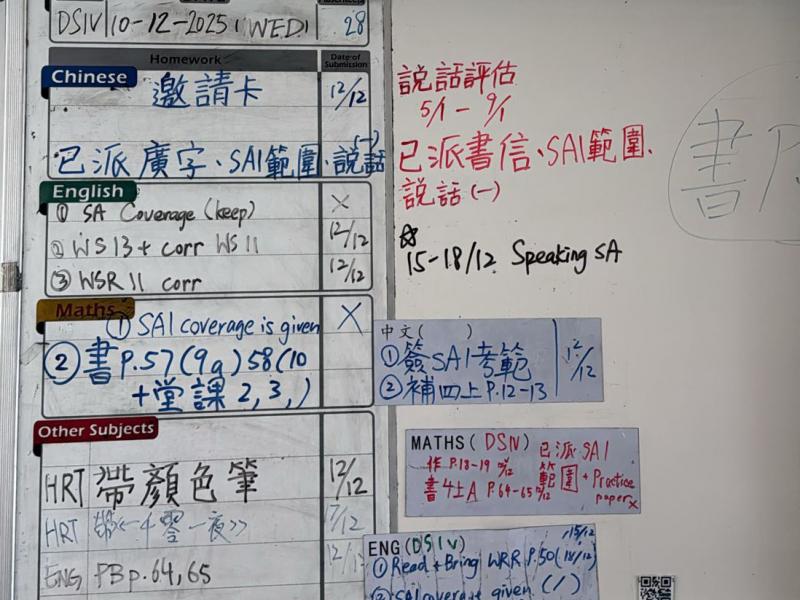 DSIV 10-12-2025 (WED) 28
Homework Date of Submission
Chinese
邀請卡 12/12
已派廣字、SA1範圍、說話(一)
English
① SA Coverage (keep) X
② WS 13 + corr WS 11 12/12
③ WSR 11 corr 12/12
Maths
① SA1 coverage is given X
② 書 P.57 (9a) 58 (10
+ 堂課 2, 3, )
Other Subjects
HRT 帶顏色筆 12/12
HRT 一千零一夜>> 17/12
ENG PB p.64, 65 12/12
說話評估
5/1 - 9/1
已派書信、SA1範圍、
說話(一)
☆
15-18/12 Speaking SA
書P.
中文( )
① 簽SA1考範 12/12
② 補四上 P.12-13
MATHS (DSIV) 已派SA1
作 P.18-19 範圍 + Practice
書4上A P.64-65 paper x
ENG (DSIV) 15/12
① Read + Bring WRR P.50 (18/12)
② SA1 given (/)